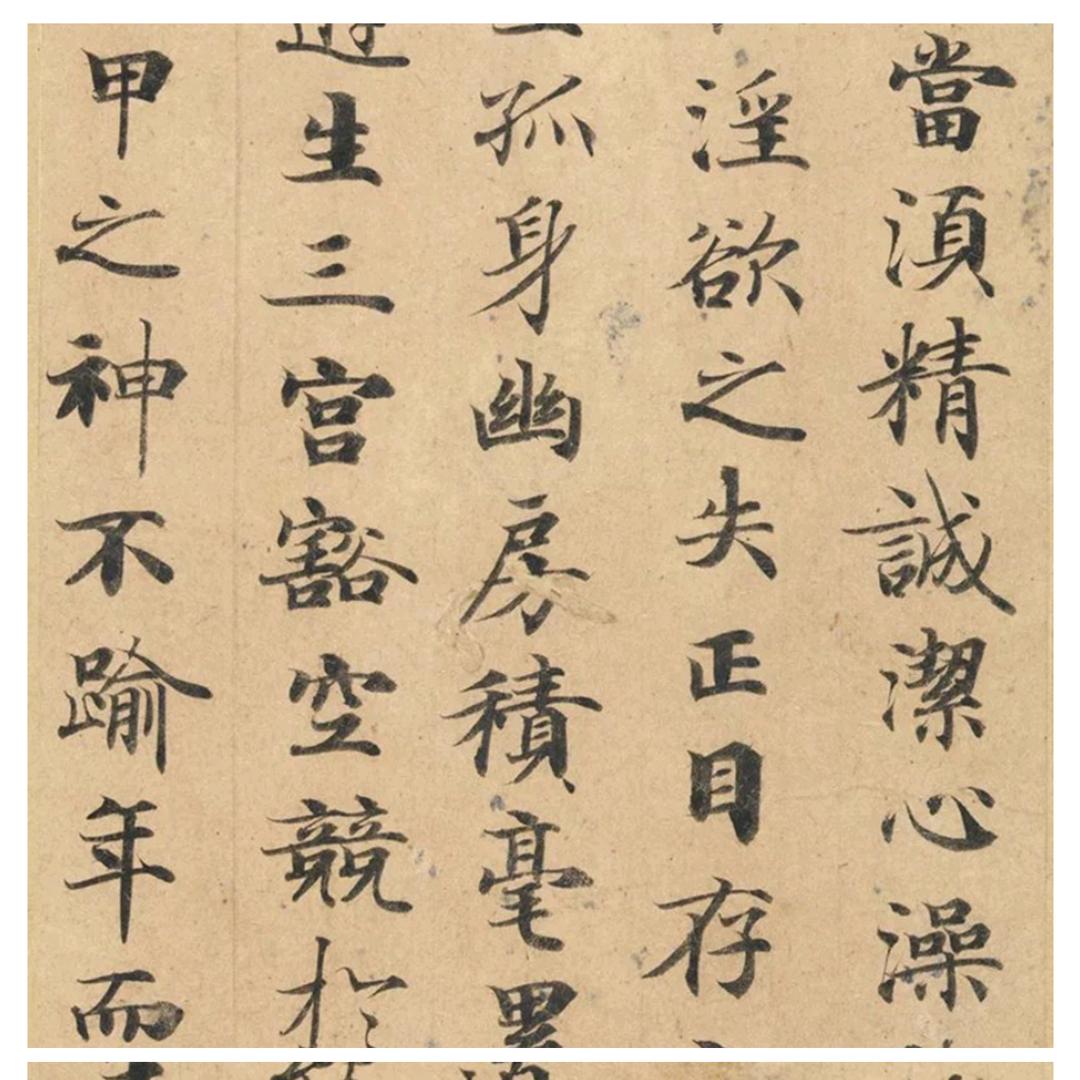 當須精誠潔心澡
淫欲之失正目存
孤身幽房積毫累
遊生三宮豁空競於
甲之神不踰年而